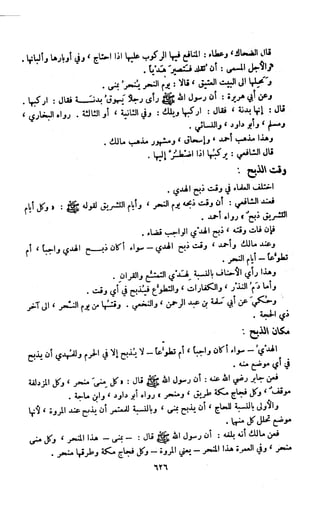 قال الضحاك ، وعطاء : المنافع فيها الركوب عليها اذا احتاج ، وفي أوبارها وألبانها .
والأجل المسمى : أن تقلد فتصير هدياً .
ومحلها الى البيت العتيق ، قالا : يوم النحر ينحر بمنى .
وعن أبي هريرة : أن رسول الله ﷺ رأى رجلا يسوق بدنة فقال : اركبها .
قال : إنها بدنة ، فقال : اركبها ويلك : وفي الثانية ، أو الثالثة . رواه البخاري ،
ومسلم ، وأبو داود ، والنسائي .
وهذا مذهب أحمد ، وإسحاق ، ومشهور مذهب مالك .
قال الشافعي : يركبها اذا اضطر إليها .
وقت الذبح :
اختلف العلماء في وقت ذبح الهدي .
فعند الشافعي : أن وقت ذبحه يوم النحر ، وأيام التشريق لقوله ﷺ : « وكل أيام
التشريق ذبح » رواه أحمد .
فإن فات وقته ، ذبح الهدي الواجب قضاء .
وعند مالك وأحمد ، وقت ذبح الهدي – سواء أكان ذبح الهدي واجباً ، أم
تطوعاً – أيام النحر .
وهذا رأي الأحناف بالنسبة لهدي التمتع والقران .
وأما دم النذر ، والكفارات ، والتطوع فيذبح في أي وقت .
وحكي عن أبي سلمة بن عبد الرحمن ، والنخعي . وقتها من يوم النحر ، الى آخر
ذي الحجة .
مكان الذبح :
الهدي – سواء أكان واجباً ، أم تطوعاً – لا يذبح إلا في الحرم وللمهدي أن يذبح
في أي موضع منه .
فعن جابر رضي الله عنه : أن رسول الله ﷺ قال : « كل منى منحر ، وكل المزدلفة
موقف ، وكل فجاج مكة طريق ، ومنحر » رواه أبو داود ، وابن ماجة .
والأولى بالنسبة للحاج ، أن يذبح بمنى ، وبالنسبة للمعتمر أن يذبح عند المروة ، لأنها
موضع تحلل كل منهما .
فعن مالك أنه بلغه : أن رسول الله ﷺ قال : – بمنى – هذا المنحر ، وكل منى
منحر ، وفي العمرة هذا المنحر – يعني المروة – وكل فجاج مكة وطرقها منحر .
٦٢٦